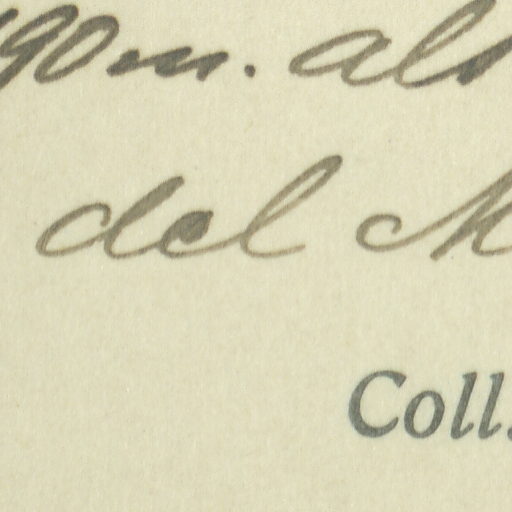 90 m. al
del M
Coll.